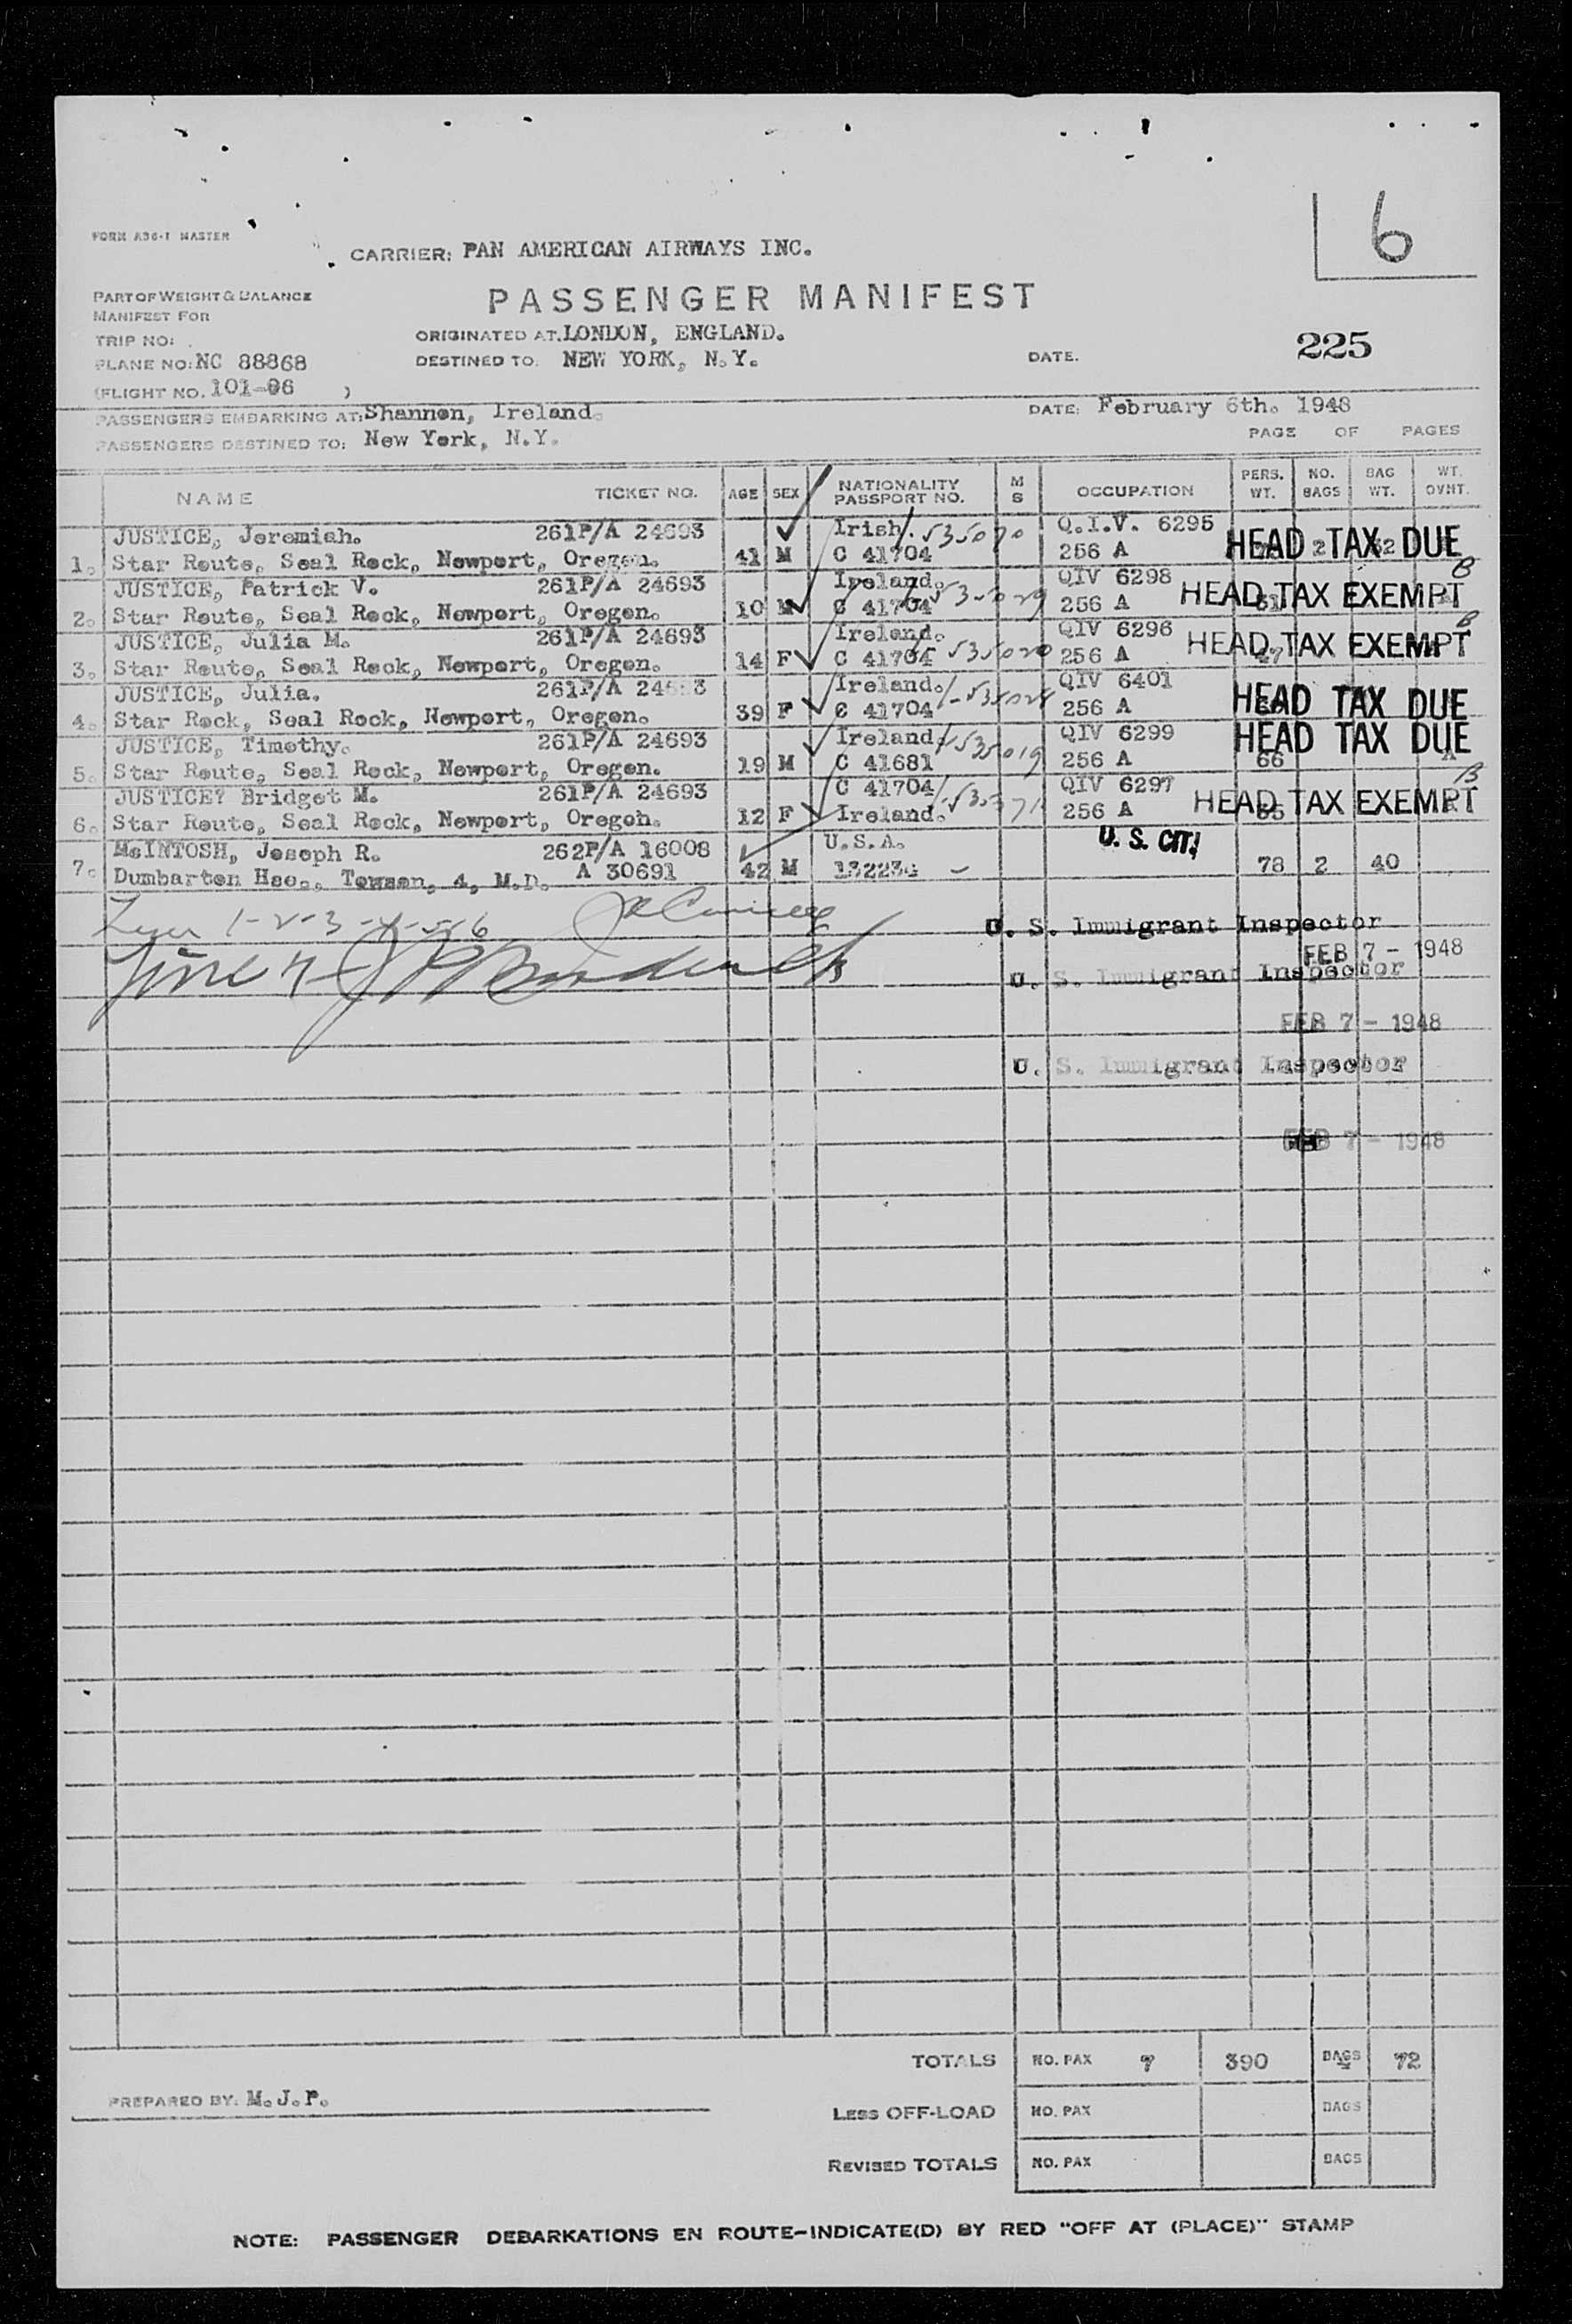 6
FORM A36-1 MASTER
CARRIER: PAN AMERICAN AIRWAYS INC.
PART OF WEIGHT & BALANCE
MANIFEST FOR
PASSENGER MANIFEST
TRIP NO:
ORIGINATED AT. LONDON, ENGLAND.
225
PLANE NO: NC 88868
DESTINED TO. NEW YORK, N.Y.
DATE.
(FLIGHT NO. 101-06 )
PASSENGERS EMBARKING AT: Shannon, Ireland.
DATE: February 6th. 1948
PASSENGERS DESTINED TO: New York, N.Y.
PAGE OF PAGES
NAME TICKET NO. AGE SEX NATIONALITY PASSPORT NO. M S OCCUPATION PERS. WT. NO. BAGS BAG WT. WT. OVHT.
JUSTICE, Jeremiah. 261P/A 24693 Irish. Q.I.V. 6295
1. Star Route, Seal Rock, Newport, Oregon. 41 M C 41704 256 A HEAD TAX DUE
JUSTICE, Patrick V. 261P/A 24693 Ireland. QIV 6298 B
2. Star Route, Seal Rock, Newport, Oregon. 10 M C 41704 256 A HEAD TAX EXEMPT
JUSTICE, Julia M. 261P/A 24693 Ireland. QIV 6296 B
3. Star Route, Seal Rock, Newport, Oregon. 14 F C 41704 535020 256 A HEAD TAX EXEMPT
JUSTICE, Julia. 261P/A Ireland. QIV 6401
4. Star Rock, Seal Rock, Newport, Oregon. 39 F C 41704 256 A HEAD TAX DUE
JUSTICE, Timothy. 261P/A 24693 Ireland. 535019 QIV 6299 HEAD TAX DUE
5. Star Route, Seal Rock, Newport, Oregon. 19 M C 41681 256 A 66 A
JUSTICE? Bridget M. 261P/A 24693 C 41704 QIV 6297 B
6. Star Route, Seal Rock, Newport, Oregon. 12 F Ireland. 256 A HEAD TAX EXEMPT
McINTOSH, Joseph R. 262P/A 16008 U.S.A. U. S. CIT.
7. Dumbarton Hse., Towson, 4, M.D. A 30691 42 M 78 2 40
1-2-3-4-5-6
U. S. Immigrant Inspector
FEB 7 - 1948
U. S. Immigrant Inspector
FEB 7 - 1948
U. S. Immigrant Inspector
FEB 7 - 1948
TOTALS NO. PAX 7 390 BAGS 72
PREPARED BY: M.J.P.
LESS OFF-LOAD NO. PAX BAGS
REVISED TOTALS NO. PAX BAGS
NOTE: PASSENGER DEBARKATIONS EN ROUTE-INDICATE(D) BY RED "OFF AT (PLACE)" STAMP